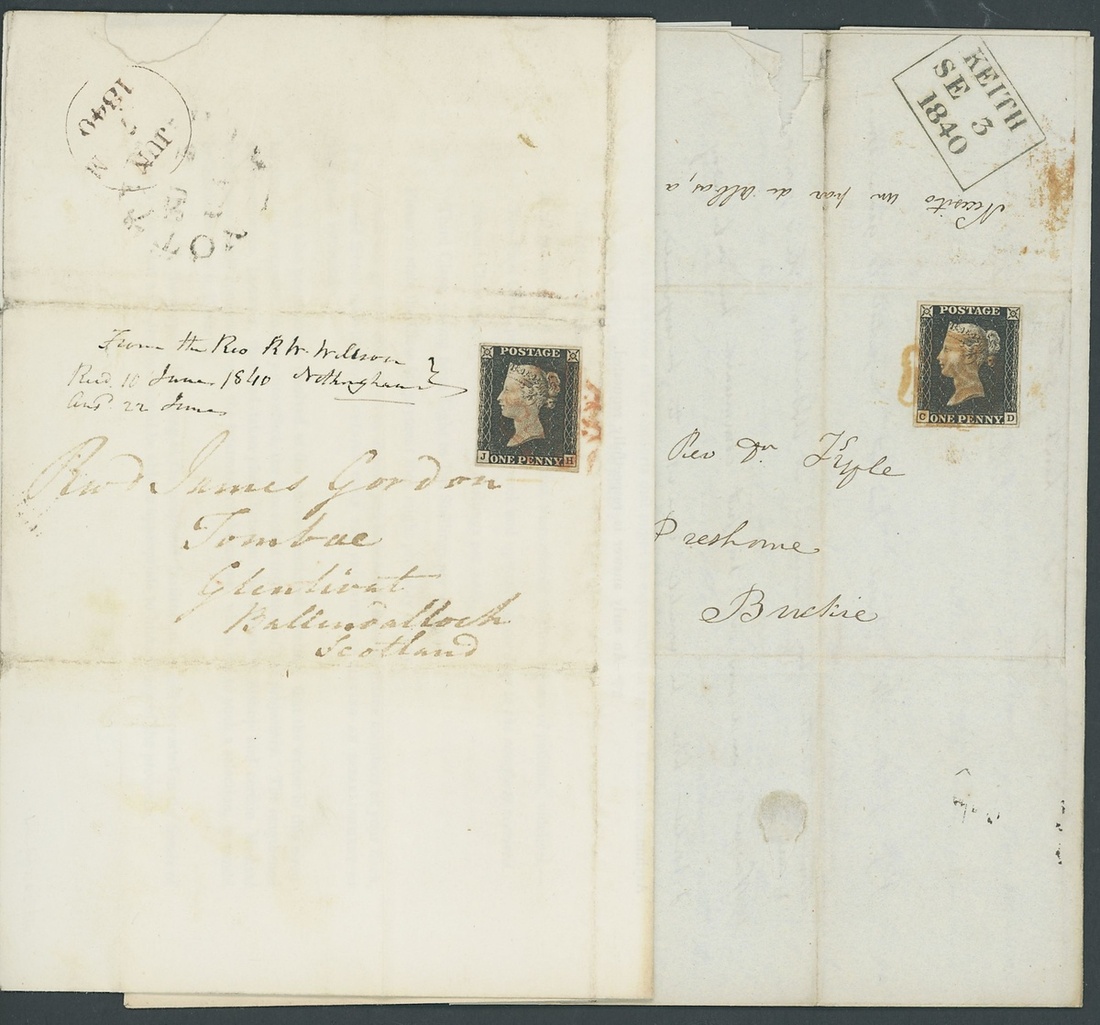 1840
7
JUN
M
NOT
From the Rev R W Willson
Recd. 10 June 1840 Nottingham
Ansd. 22 June
POSTAGE
J H
ONE PENNY
Revd James Gordon
Tombae
Glenlivat
Ballendalloch
Scotland
KEITH
SE 3
1840
Necesito un par de albas, a
POSTAGE
C D
ONE PENNY
Rev Dr Kyle
Preshome
Buckie